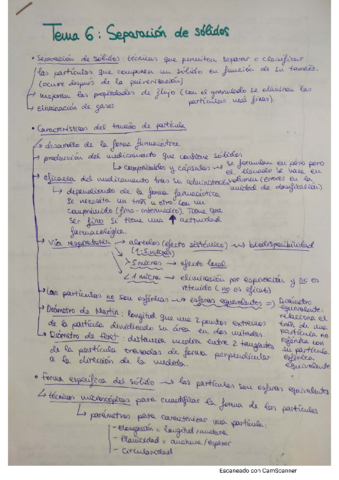 Tema 6: Separación de sólidos
• Separación de sólidos: técnicas que permiten separar o clasificar
las partículas que componen un sólido en función de su tamaño.
(ocurre después de la pulverización)
• mejorar las propiedades de flujo (con el granulado se eliminan las
partículas más finas).
• eliminación de gases
• Características del tamaño de partícula
desarrollo de la forma farmacéutica
producción del medicamento que contiene sólidos
comprimidos y cápsulas → se formulan en peso pero
el llenado se hace en
eficacia del medicamento tras su administración
volumen (errores en la
unidad de dosificación)
dependiendo de la forma farmacéutica
se necesita un tamaño u otro con un
comprimido (fino-intermedio). Tiene que
ser fino si tiene una ↑ actividad
farmacológica.
Vía respiratoria → alveolos (efecto sistémico) → biodisponibilidad
→ efecto local
< 1 micra → eliminación por espiración y no es
retenido (no es eficaz)
Las partículas no son esféricas → esferas equivalentes ⇒ Diámetro
equivalente:
relaciona el
Diámetro de Martin: longitud que une 2 puntos extremos
de la partícula dividiendo su área en dos mitades
Diámetro de Feret: distancia medida entre 2 tangentes
de la partícula trazadas de forma perpendicular
a la dirección de la medida.
partícula no
esférica con
su partícula
esférica
equivalente
• Forma específica del sólido → las partículas son esferas equivalentes
técnicas microscópicas para cuantificar la forma de las partículas
parámetros para caracterizar una partícula:
- Elongación = longitud/anchura
- Planicidad = anchura/espesor
- Circularidad
Escaneado con CamScanner